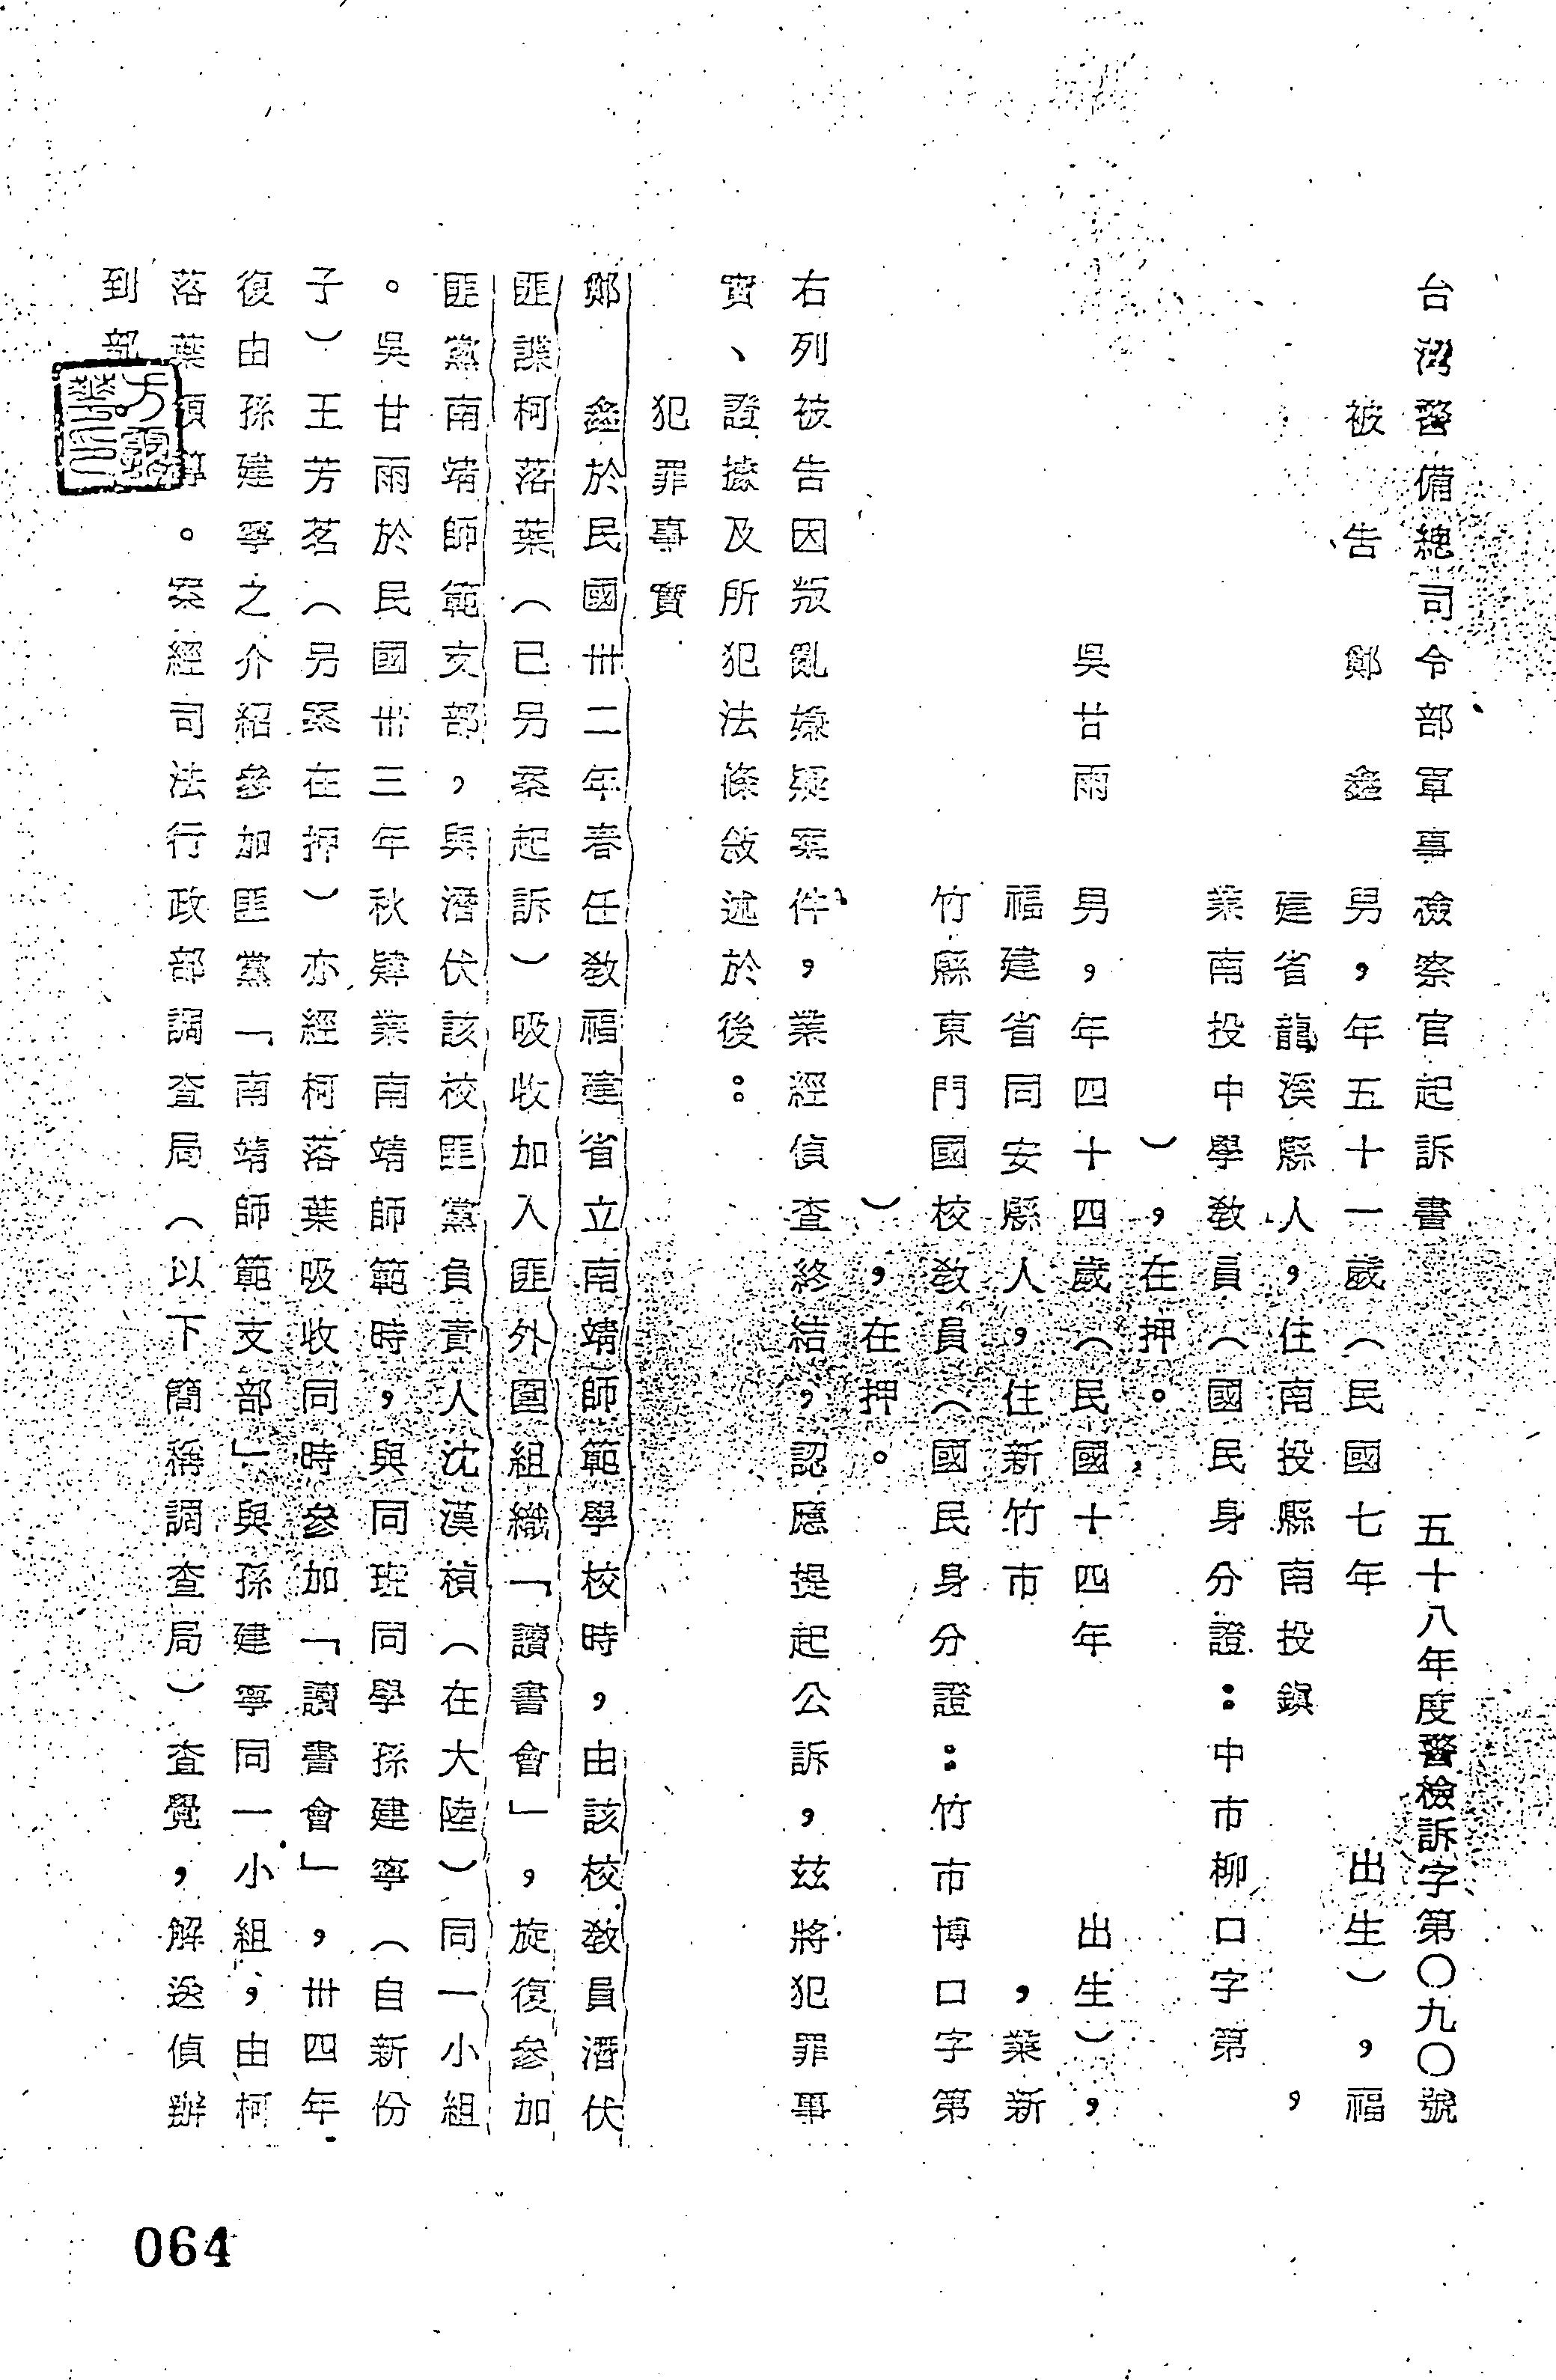 台灣警備總司令部軍事檢察官起訴書　五十八年度警檢訴字第〇九〇號
被告　鄭　鑫　男，年五十一歲（民國七年　出生），福
建省龍溪縣人，住南投縣南投鎮　，
業南投中學教員（國民身分證：中市柳口字第
），在押。
吳甘雨　男，年四十四歲（民國十四年　出生），
福建省同安縣人，住新竹市　，業新
竹縣東門國校教員（國民身分證：竹市博口字第
），在押。
右列被告因叛亂嫌疑案件，業經偵查終結，認應提起公訴，茲將犯罪事
實、證據及所犯法條敘述於後：
犯罪事實
鄭　鑫於民國卅二年春任教福建省立南靖師範學校時，由該校教員潛伏
匪諜柯落葉（已另案起訴）吸收加入匪外圍組織「讀書會」，旋復參加
匪黨南靖師範支部，與潛伏該校匪黨負責人沈漢楨（在大陸）同一小組
。吳甘雨於民國卅三年秋肄業南靖師範時，與同班同學孫建寧（自新份
子）王芳茗（另案在押）亦經柯落葉吸收同時參加「讀書會」，卅四年
復由孫建寧之介紹參加匪黨「南靖師範支部」與孫建寧同一小組，由柯
落葉領導。案經司法行政部調查局（以下簡稱調查局）查覺，解送偵辦
到部
064